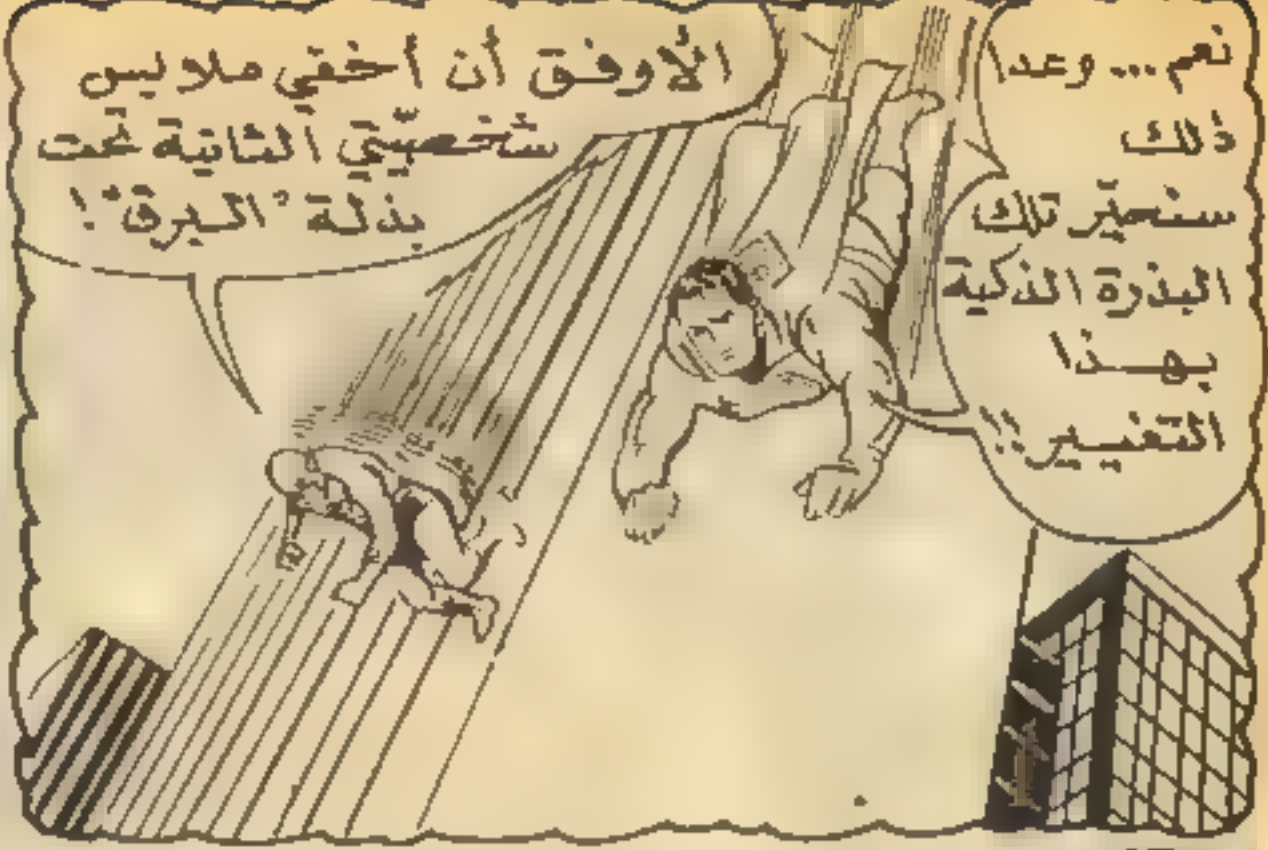 نعم... وعدا
ذلك
سنحيّر تلك
البذرة الذكية
بهذا
التغيير!!
الأوفق أن أخفي ملابس
شخصيّتي الثانية تحت
بذلة "البرق"!